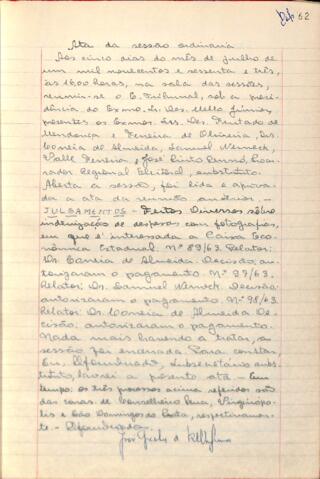 62
Ata da sessão ordinária
Aos cinco dias do mês de julho de
um mil novecentos e sessenta e três,
às 16,00 horas, na sala das sessões,
reuniu-se o E. Tribunal, sob a presi-
dência do Exmo. Sr. Des. Mello Júnior,
presentes os Exmos. Srs. Des. Furtado de
Mendonça e Ferreira de Oliveira, Drs.
Corrêia de Almeida, Samuel Werneck,
Valle Ferreira, José Pinto Renno, Procu-
rador Regional Eleitoral, substituto.
Aberta a sessão, foi lida e aprova-
da a ata da reunião anterior. -
JULGAMENTOS - Feitos Diversos sôbre
indenização de despesas com fotografias,
em que é interessada a Caixa Eco-
nômica Estadual. Nº 89/63. Relator:
Dr. Corrêia de Almeida. Decisão: au-
torizaram o pagamento. Nº 87/63.
Relator: Dr. Samuel Werneck. Decisão:
autorizaram o pagamento. Nº 98/63.
Relator: Dr. Corrêia de Almeida. De-
cisão: autorizaram o pagamento.
Nada mais havendo a tratar, a
sessão foi encerrada. Para constar,
Eu, Secretário substi-
tuto, lavrei a presente ata. - Em
tempo: os três processos acima referidos são
das zonas de Conselheiro Pena, Virginópo-
lis e São Domingos do Prata, respectivamen-
te. -
José